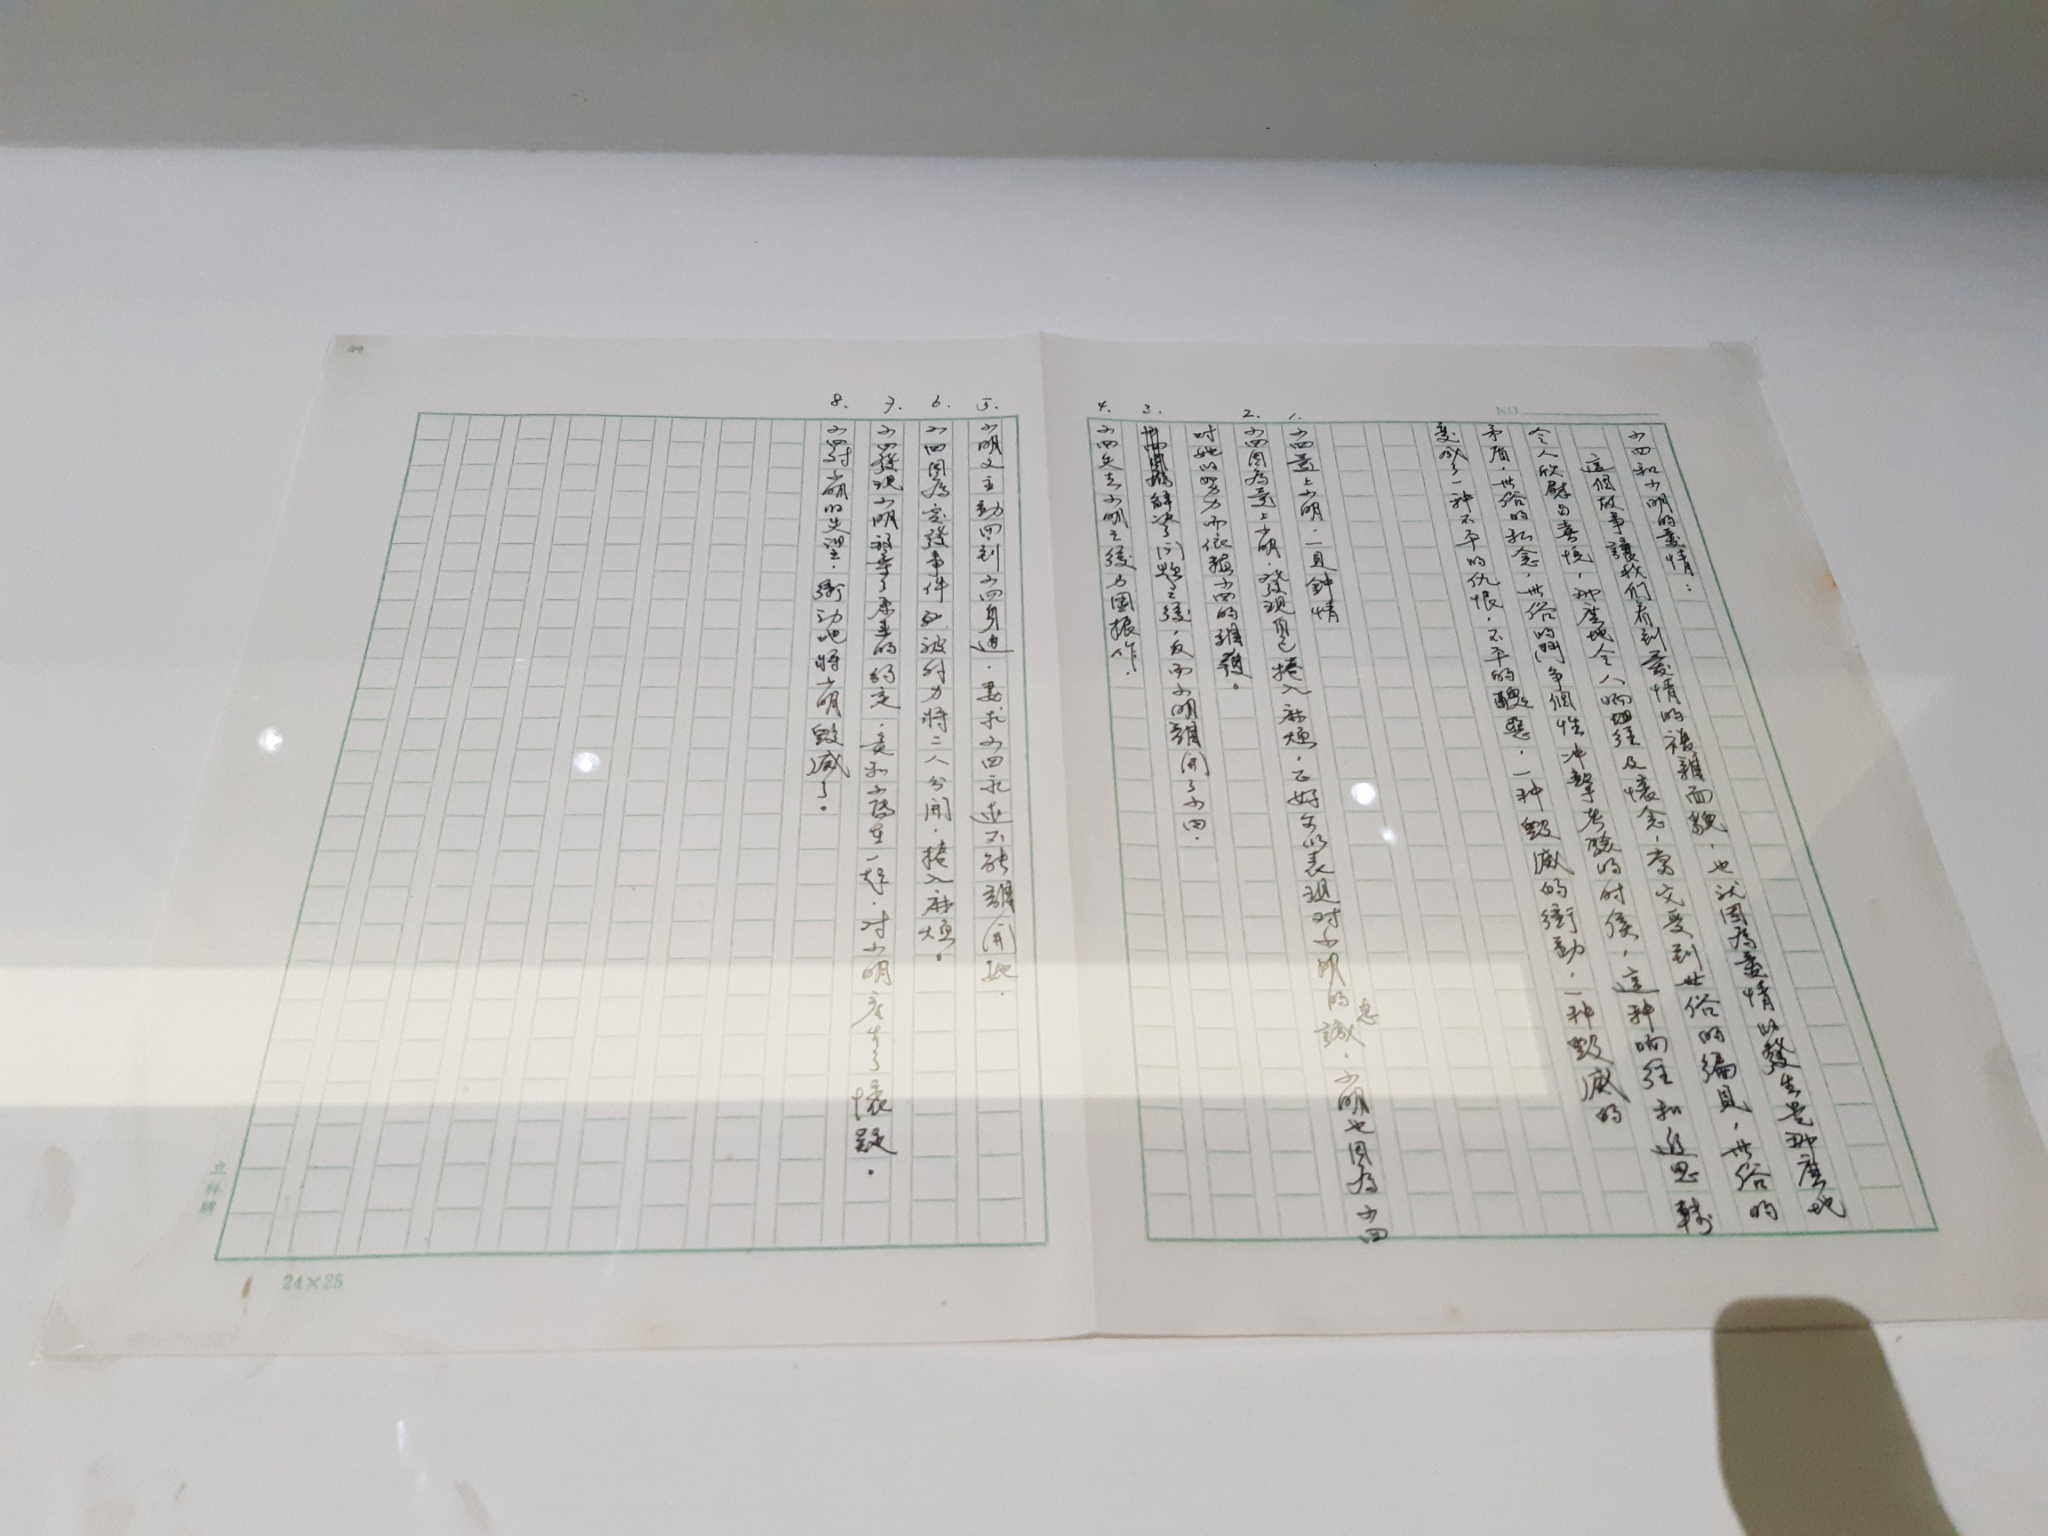 NO
小四和小明的愛情：
這個故事讓我們看到愛情的複雜面貌，也許因為愛情的發生是那麼地
令人欣慰與喜悅，那麼地令人嚮往及懷念，當它受到世俗的偏見，世俗的
矛盾，世俗的私念，世俗的鬥爭個性冲擊考驗的时候，這种响往和追思轉
變成了一种不平的仇恨，不平的醜惡，一种毀滅的衝動，一种毀滅的
1. 小四愛上小明，一見鍾情
2. 小四因為愛上小明，發現自己捲入麻煩，正好可以表現对小明的誠意，小明也因為小四
对她的努力而依賴小四的維護。
3. 解決了问题之後，反而小明離開了小四．
4. 小四失去小明之後力圖振作．
5. 小明又主動回到小四身边．要求小四永遠不能離開她．
6. 小四因為突發事件又被外力將二人分開．捲入麻煩。
7. 小四發現小明放棄了原來的約定．竟和小馬在一起．对小明產生了懷疑。
8. 小四对小明的失望．衝动地將小明毀滅了。
立祥牌
24×25